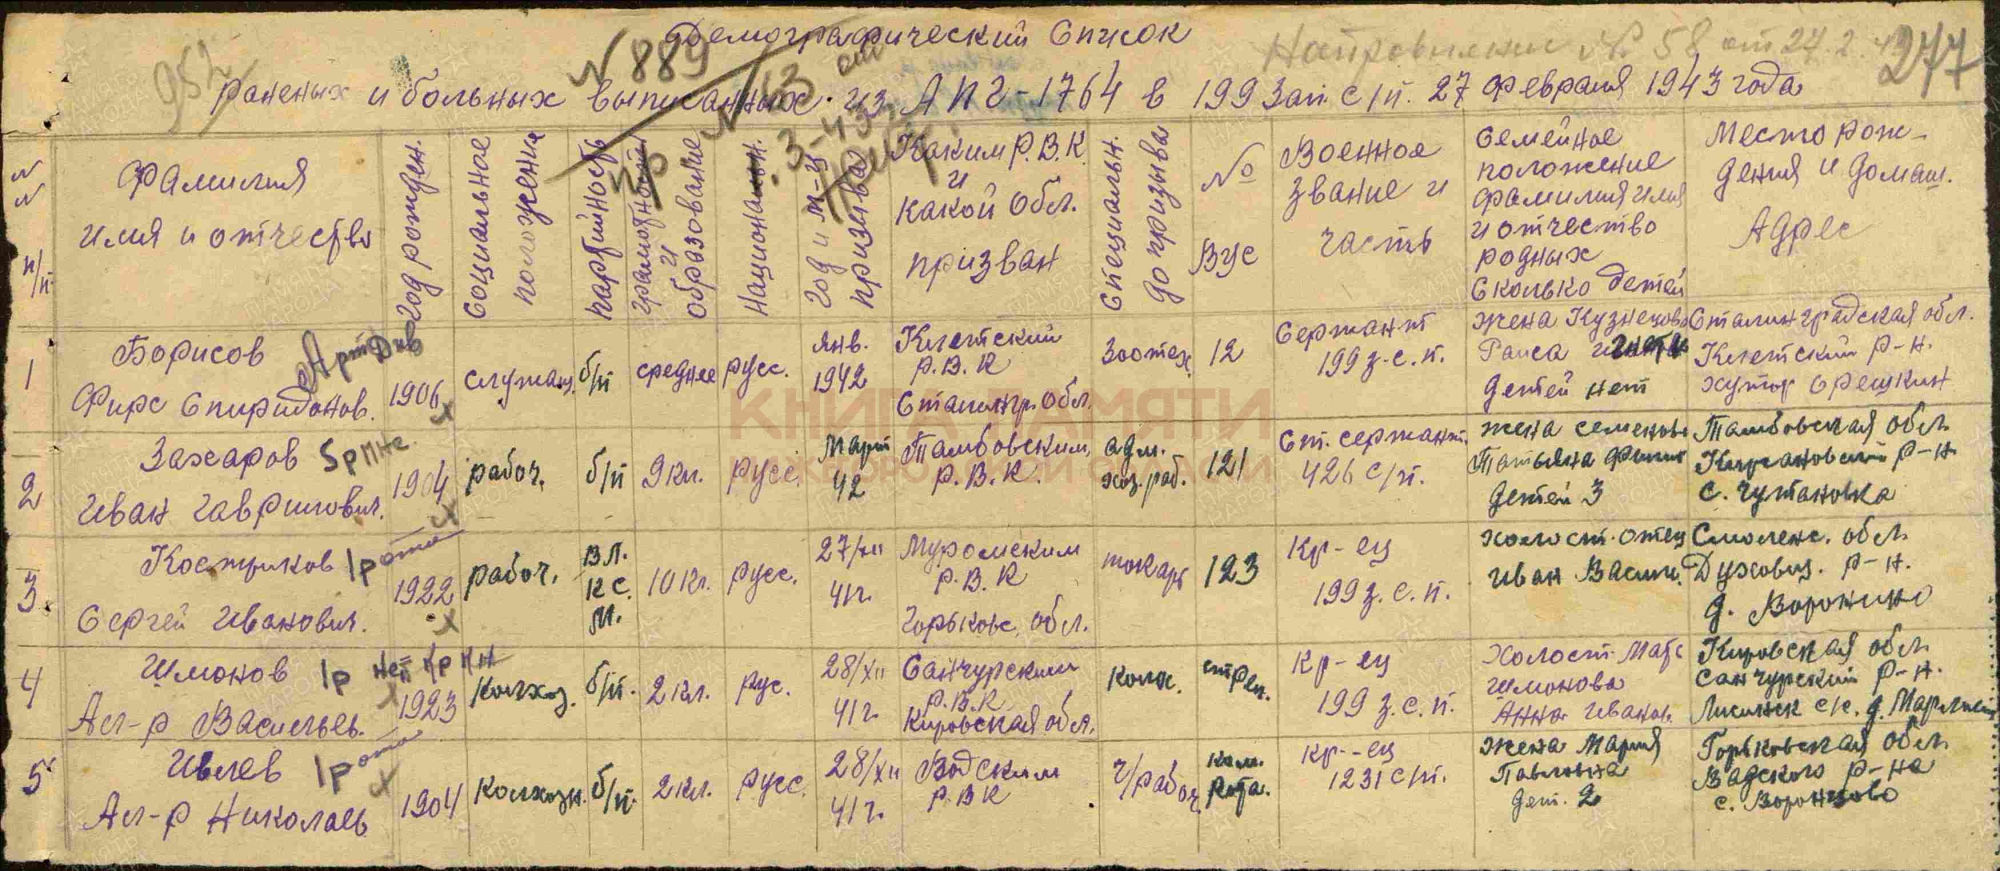 Демографический Список
952
N 889
Направление № 58 от 27.2.43
277
раненых и больных выписанных из АПГ-1764 в 199 Зап. с/п. 27 февраля 1943 года
N N п/п
Фамилия
имя и отчество
Год рожден.
Социальное
положение
Партийность
грамотность
и
образование
Национальн.
Год и м-ц
призыва
Каким Р.В.К.
и
какой обл.
призван
Специальн.
до призыва
№
ВУС
Военное
звание и
часть
Семейное
положение
фамилия имя
и отчество
родных
Сколько детей
Место рож-
дения и домаш.
Адрес
1
Борисов
Фирс Спиридонов.
АртДив
1906
служащ.
б/п
среднее
русс.
янв.
1942
Клетский
Р.В.К
Сталингр. обл.
Зоотех.
12
Сержант
199 з.с.п.
жена Кузнецова
Раиса
детей нет
Сталинградская обл.
Клетский р-н.
хутор Орешкин
2
Захаров
Иван Гаврилович.
1904
рабоч.
б/п
9 кл.
русс.
Март
42
Тамбовским
Р.В.К.
адм.
хоз. раб.
121
Ст. сержант.
426 с/п.
жена Семенова
Татьяна
детей 3
Тамбовская обл.
Кирсановский р-н
с. Чутановка
3
Костриков 1 рота
Сергей Иванович.
1922
рабоч.
ВЛ.
КС.
М.
10 кл.
русс.
27/XII
41 г.
Муромским
Р.В.К
Горьковс. обл.
токарь
123
Кр-ец
199 з.с.п.
холост. отец
Иван Васил.
Смоленс. обл.
Духовщ. р-н.
д. Воронино
4
Шмонов 1р
Ал-р Васильев.
1923
Колхоз.
б/п.
2 кл.
рус.
28/XII
41 г.
Санчурским
Р.В.К
Кировская обл.
Колх.
стрел.
Кр-ец
199 з.с.п.
Холост. мать
Шмонова
Анна Иванов.
Кировская обл.
Санчурский р-н.
5
Ивлев 1 рота
Ал-р Николаев
1904
Колхозн.
б/п.
2 кл.
русс.
28/XII
41 г.
Вадским
Р.В.К
ч/рабоч.
Кр-ец
1231 с/п.
жена Мария
Павловна
дет. 2
Горьковская обл.
Вадского р-на
с. Воронцово
КНИГА ПАМЯТИ
НИЖЕГОРОДСКОЙ ОБЛАСТИ